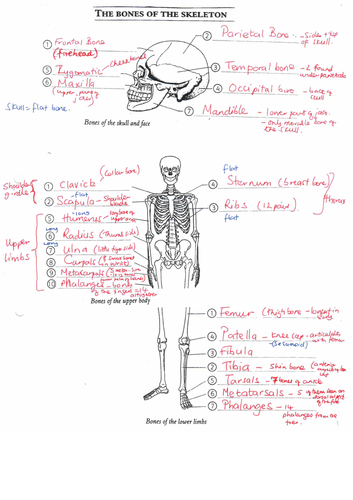 THE BONES OF THE SKELETON
① Frontal Bone
(forehead)
⑤ Zygomatic
Cheekbone
⑥ Maxilla
(upper part of jaw)
Skull = flat bone.
② Parietal Bone - Sides + top
of skull.
③ Temporal bone - 2 found
under parietals
④ Occipital bone - base of
skull
⑦ Mandible - lower part of jaw.
- only movable bone of
the skull.
Bones of the skull and face
(collar bone)
Shoulder
girdle
① Clavicle
flat
② Scapula - Shoulder
blade
long
⑤ Humerus
Upper
limbs
long
⑥ Radius (thumb side)
long
⑦ Ulna (little finger side)
⑧ Carpals
⑨ Metacarpals
⑩ Phalanges - bones
Bones of the upper body
flat
④ Sternum (breast bone)
③ Ribs (12 pairs)
flat
thorax
① Femur (thigh bone - longest in
body
④ Patella - knee cap - articulates
with femur
(sesamoid)
③ Fibula
② Tibia - Shin bone
⑤ Tarsals - 7 bones of ankle
⑥ Metatarsals - 5
⑦ Phalanges - 14
phalanges from the
toes.
Bones of the lower limbs